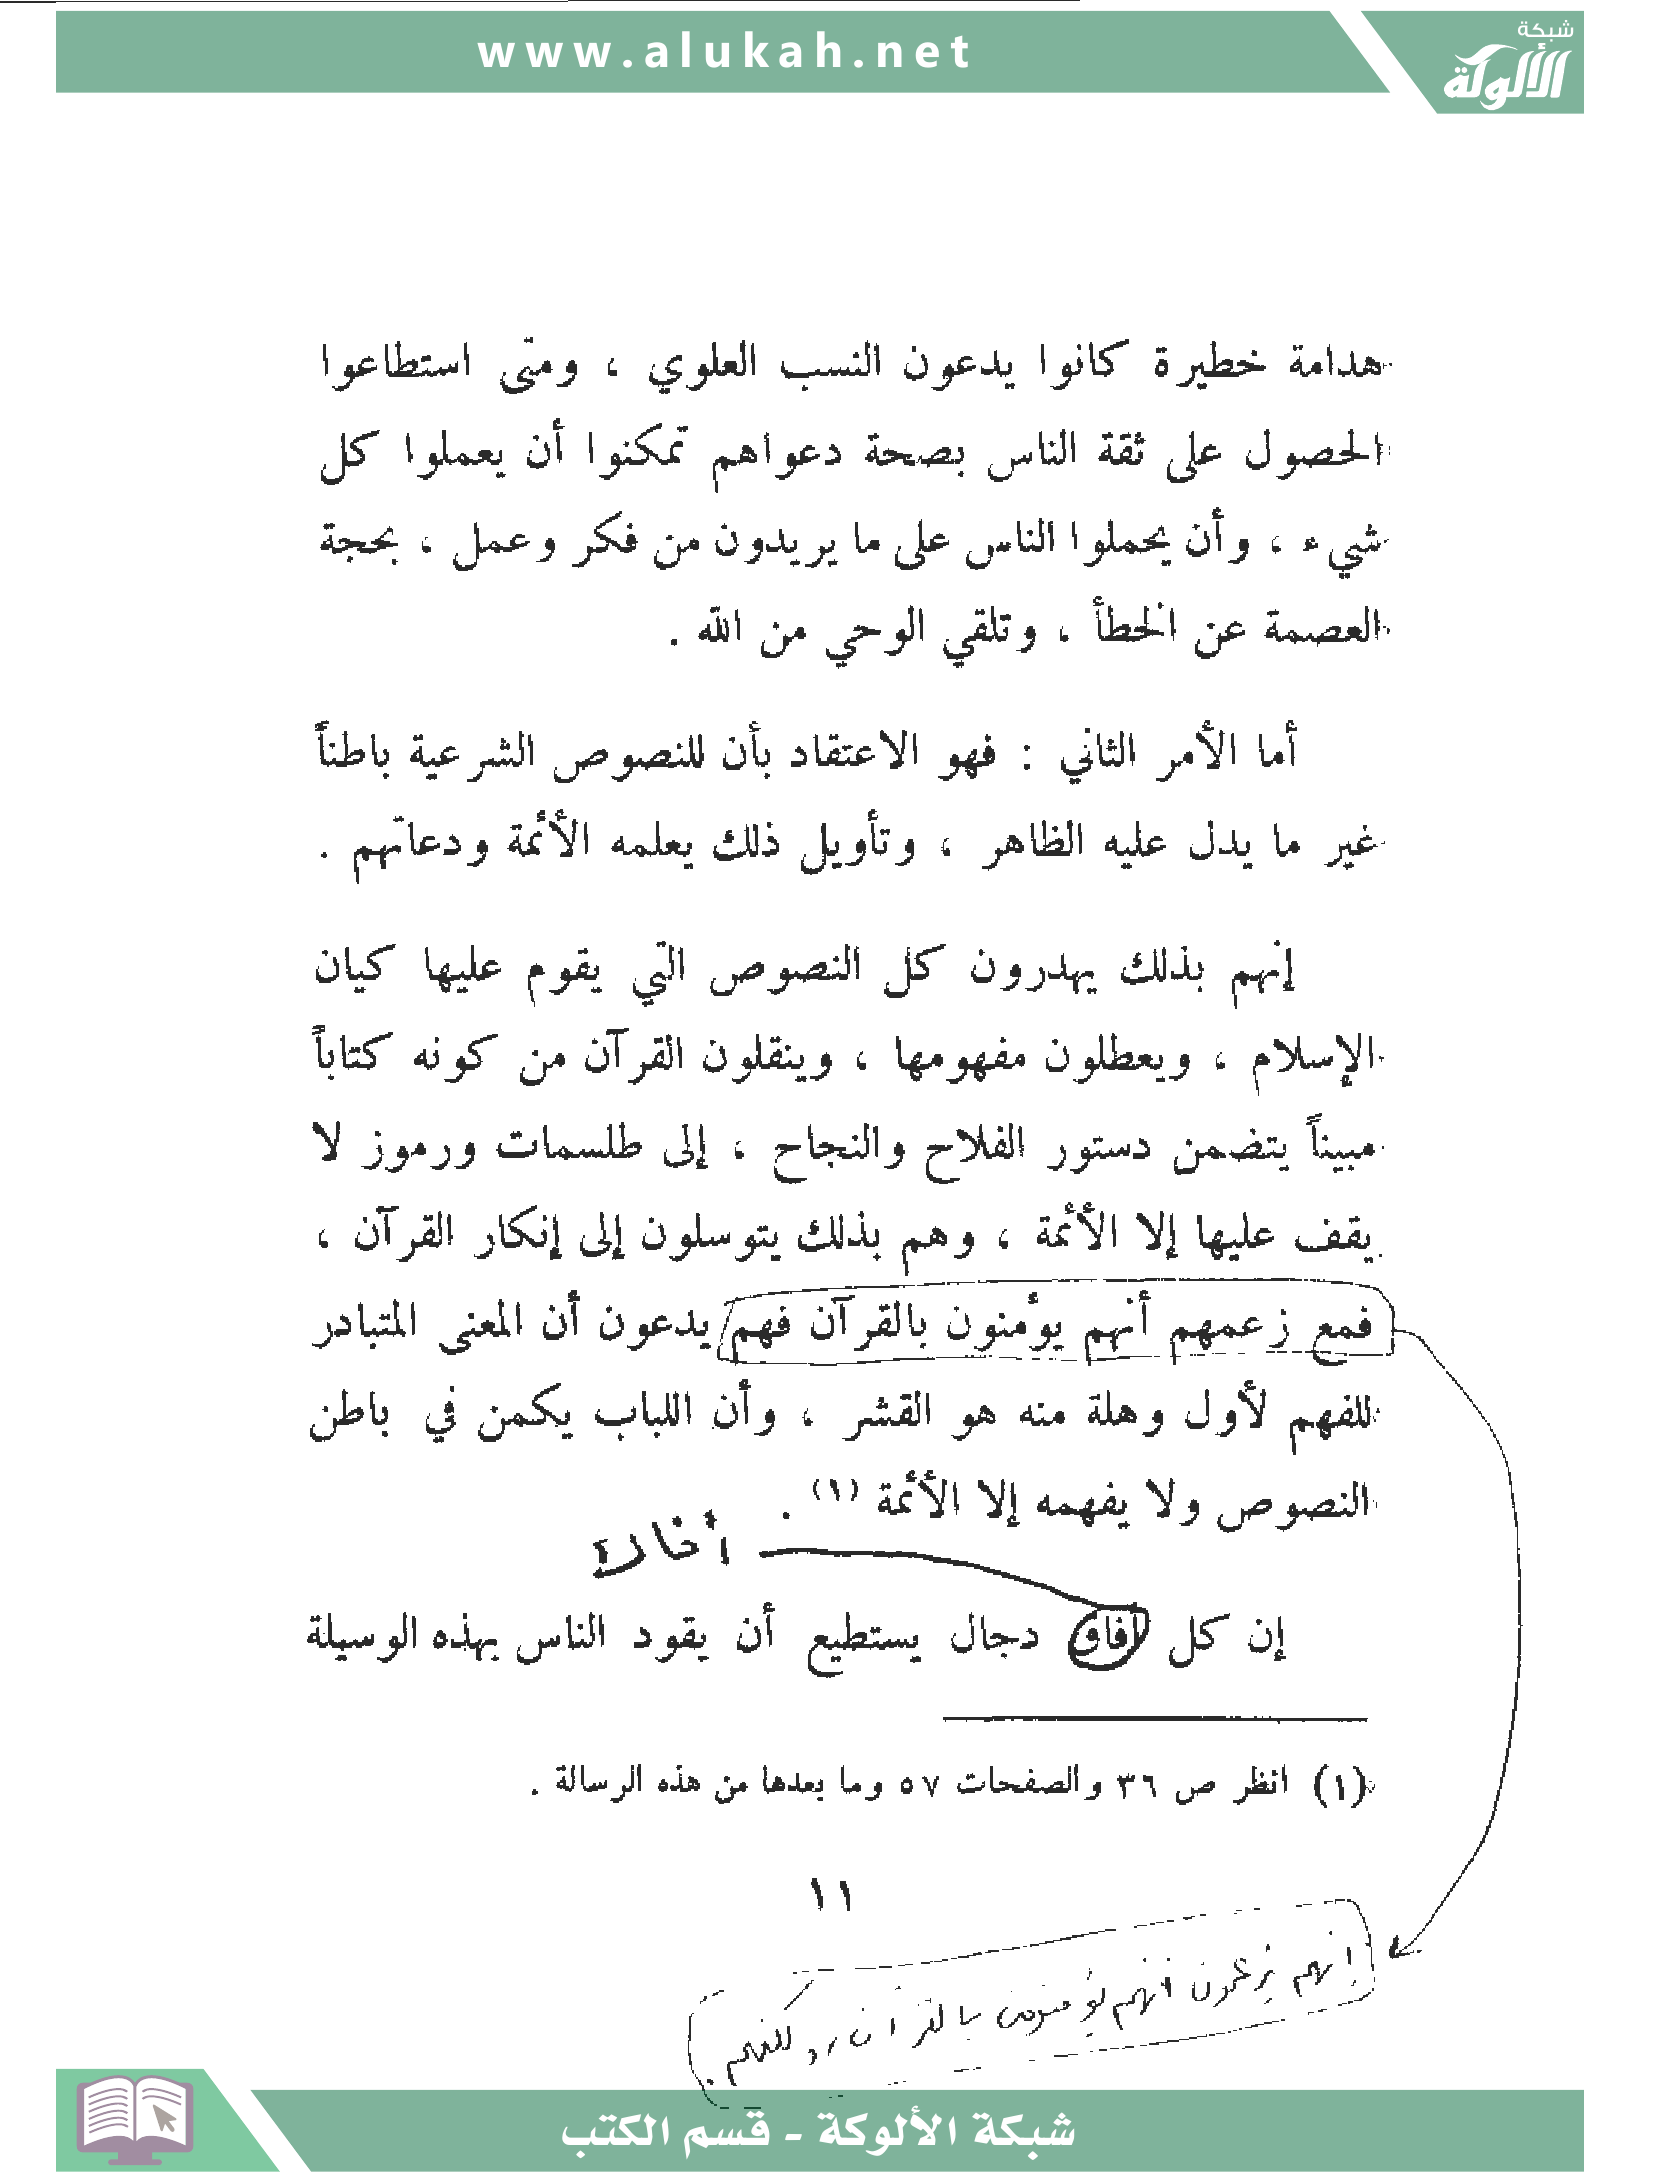 www.alukah.net
شبكة
الألوكة
هدامة خطيرة كانوا يدعون النسب العلوي ، ومتى استطاعوا
الحصول على ثقة الناس بصحة دعواهم تمكنوا أن يعملوا كل
شيء ، وأن يحملوا الناس على ما يريدون من فكر وعمل ، بحجة
العصمة عن الخطأ ، وتلقي الوحي من الله .
أما الأمر الثاني : فهو الاعتقاد بأن للنصوص الشرعية باطناً
غير ما يدل عليه الظاهر ، وتأويل ذلك يعلمه الأئمة ودعاتهم .
إنهم بذلك يهدرون كل النصوص التي يقوم عليها كيان
الإسلام ، ويعطلون مفهومها ، وينقلون القرآن من كونه كتاباً
مبيناً يتضمن دستور الفلاح والنجاح ، إلى طلسمات ورموز لا
يقف عليها إلا الأئمة ، وهم بذلك يتوسلون إلى إنكار القرآن ،
فمع زعمهم أنهم يؤمنون بالقرآن فهم يدعون أن المعنى المتبادر
للفهم لأول وهلة منه هو القشر ، وأن اللباب يكمن في باطن
النصوص ولا يفهمه إلا الأئمة (١) .
إن كل افاق دجال يستطيع أن يقود الناس بهذه الوسيلة
(١) انظر ص ٣٦ والصفحات ٥٧ وما بعدها من هذه الرسالة .
١١
إنهم يزعمون أنهم يؤمنون بالقرآن، ولكنهم
شبكة الألوكة - قسم الكتب